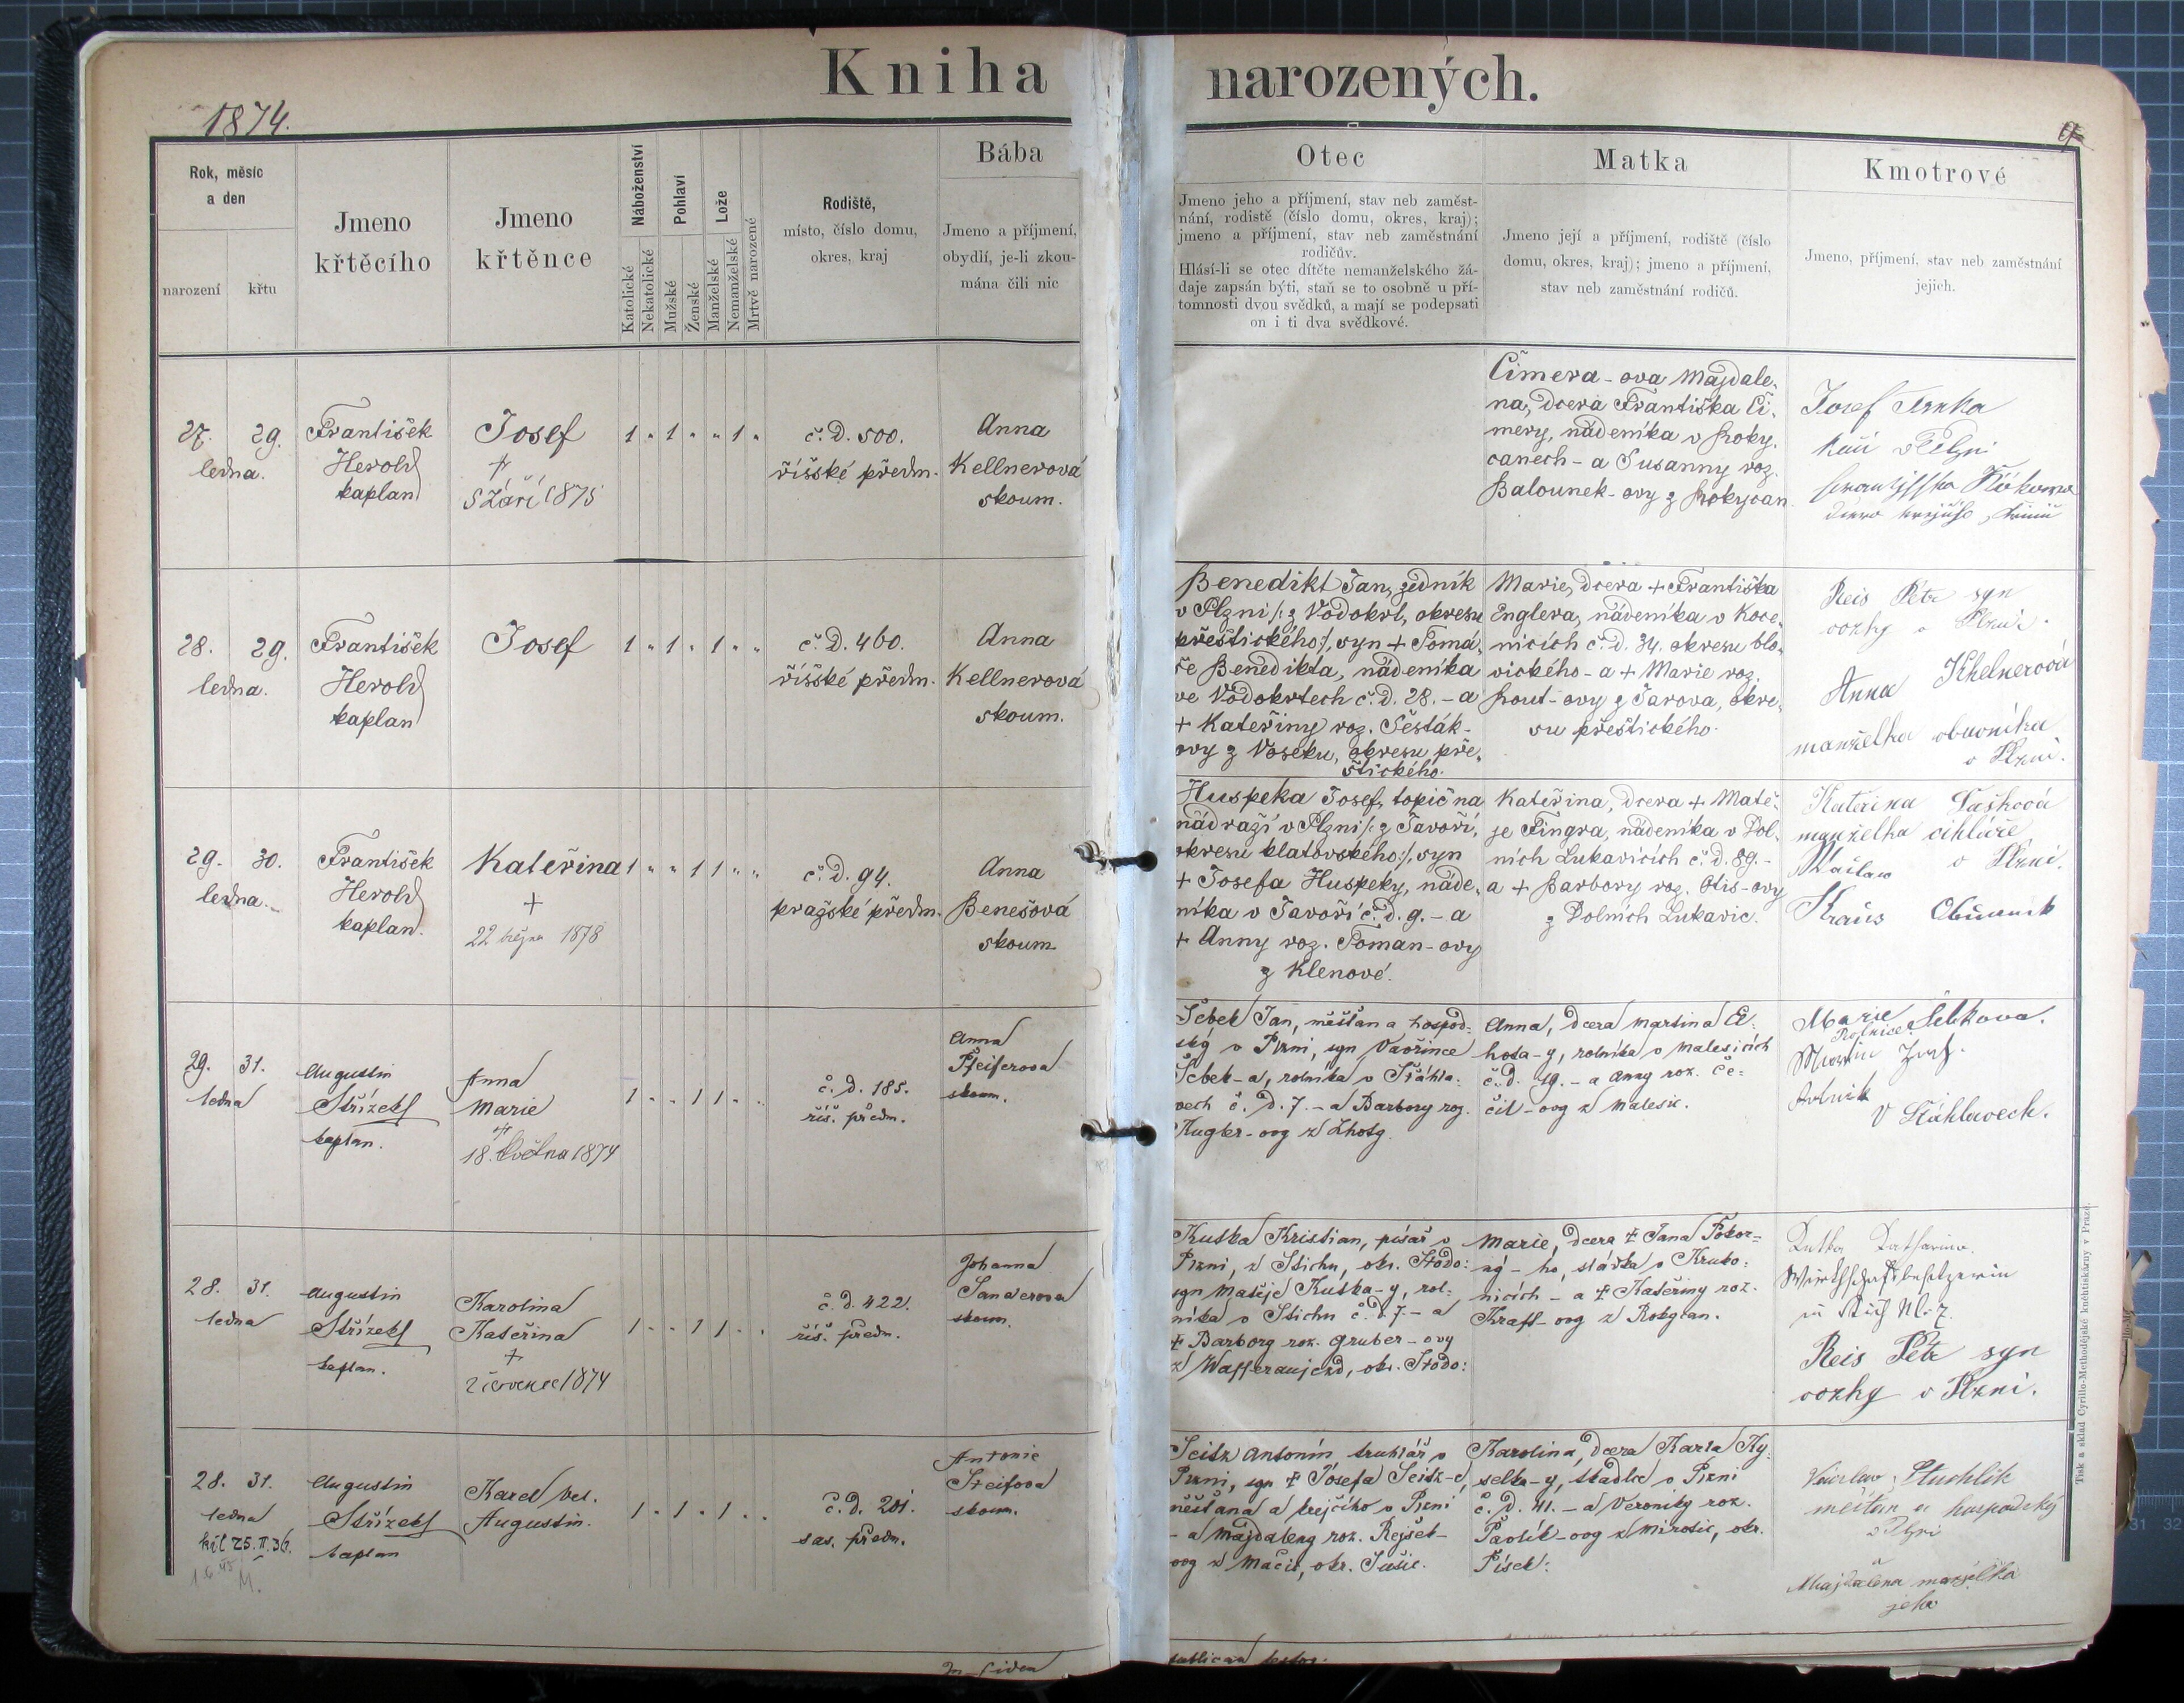 Kniha narozených.
1874.
Rok, měsíc
a den
narození
křtu
Jmeno
křtěcího
Jmeno
křtěnce
Náboženství
Katolické
Nekatolické
Pohlaví
Mužské
Ženské
Lože
Manželské
Nemanželské
Mrtvě narozené
Rodiště,
místo, číslo domu,
okres, kraj
Bába
Jmeno a příjmení,
obydlí, je-li zkou-
mána čili nic
Otec
Jmeno jeho a příjmení, stav neb zaměst-
nání, rodistě (číslo domu, okres, kraj);
jmeno a příjmení, stav neb zaměstnání
rodičův.
Hlásí-li se otec dítěte nemanželského žá-
daje zapsán býti, staň se to osobně u pří-
tomnosti dvou svědků, a mají se podepsati
on i ti dva svědkové.
Matka
Jmeno její a příjmení, rodiště (číslo
domu, okres, kraj); jmeno a příjmení,
stav neb zaměstnání rodičů.
Kmotrové
Jmeno, příjmení, stav neb zaměstnání
jejich.
27. 29.
ledna.
František
Herold
kaplan
Josef
+
5 Září 1875
1 " 1 " " 1 "
č. d. 500.
říšské předm.
Anna
Kellnerová
skoum.
Čimera-ova Majdale-
na, dcera Františka Či-
mery, nádeníka v Roky-
canech - a Susanny roz.
Balounek-ovy z Rokycan
Josef
28. 29.
ledna.
František
Herold
kaplan
Josef
1 " 1 " 1 " "
č. d. 460.
říšské předm.
Anna
Kellnerová
skoum.
Benedikt Jan, zedník
v Plzni /: z Vodokrt, okresu
přeštického:/, syn + Tomá-
še Benedikta, nádeníka
ve Vodokrtech č. d. 28. - a
+ Kateřiny roz. Šesták-
ovy z Voseku, okresu pře-
štického.
Marie, dcera + Františka
Englera, nádeníka v Koce-
nicích č. d. 34. okresu blo-
vického - a + Marie roz.
Rout-ovy z Žarova, okre-
su přeštického.
Reis Petr syn
vozky v Plzni.
Anna Khelnerová
manželka obuvníka
v Plzni.
29. 30.
ledna.
František
Herold
kaplan.
Kateřina
+
22 března 1878
1 " " 1 1 " "
č. d. 94.
pražské předm.
Anna
Benešová
skoum.
Huspeka Josef, topič na
nádraží v Plzni /: z Javoří,
okresu klatovského:/, syn
+ Josefa Huspeky, náde-
níka v Javoří č. d. 9. - a
+ Anny roz. Toman-ovy
z Klenové.
Kateřina, dcera + Matě-
je Fingra, nádeníka v Dol-
ních Lukavicích č. d. 89. -
a + Barbory roz. Otis-ovy
z Dolních Lukavic.
Kateřina Sašková
manželka cihláře
v Plzni.
Václav
Kraus Obuvník
29. 31.
ledna
Augustin
Střízek
kaplan.
Anna
Marie
+
18. Května 1874
1 . . 1 1 . .
č. d. 185.
říš. předm.
Anna
Pfeiferova
skoum.
Šebek Jan, měšťan a hospod-
ský v Plzni, syn Vavřince
Šebek-a, rolníka v Šťáhla-
vech č. d. 7. - a Barbory roz.
Kugler-ovy z Lhoty.
Anna, dcera Martina Ci-
hota-y, rolníka v Malesicích
č. d. 49. - a Anny roz. Če-
čil-ovy z Malesic.
Marie Šebkova.
Rolnice
Martin
Rolník
V Šťáhlavech.
28. 31.
ledna
Augustin
Střízek
kaplan.
Karolina
Kateřina
+
2 červenec 1874
1 . . 1 1 . .
č. d. 422.
říš. předm.
Johanna
Sanderova
skoum.
Kutka Kristian, písař v
Plzni, z Stichu, okr. Stodo:
syn Matěje Kutka-y, rol-
níka v Stichu č. d. 7. - a
+ Barbory roz. Gruber-ovy
z Wasseraujezd, okr. Stodo:
Marie, dcera + Jana Pokor-
ný-ho, sládka v Kruko-
nicích - a + Kateřiny roz.
Kraft-ovy z Rokycan.
Kutka Katharina
Wirthschaftsbesitzerin
Reis Petr syn
vozky v Plzni.
28. 31.
ledna
Augustin
Střízek
kaplan
Karel
Augustin.
1 . 1 . 1 . .
č. d. 201.
sas. předm.
Antonie
Steifova
skoum.
Seitz Antonín truhlář v
Plzni, syn + Josefa Seitz-e,
měšťana a krejčího v Plzni
- a Majdaleny roz. Rejšek-
ovy z Mačic, okr. Sušic.
Karolina, dcera Karla Ky-
selka-y, tkadlce v Plzni
č. d. 41. - a Veroniky roz.
Pavlík-ovy z Mirotic, okr.
Písek:
Václav Stuchlik
měštan a hospodský
v Plzni
a
Majdalena manželka
jeho
Tisk a sklad Cyrillo-Methodějské knihtiskárny v Praze.